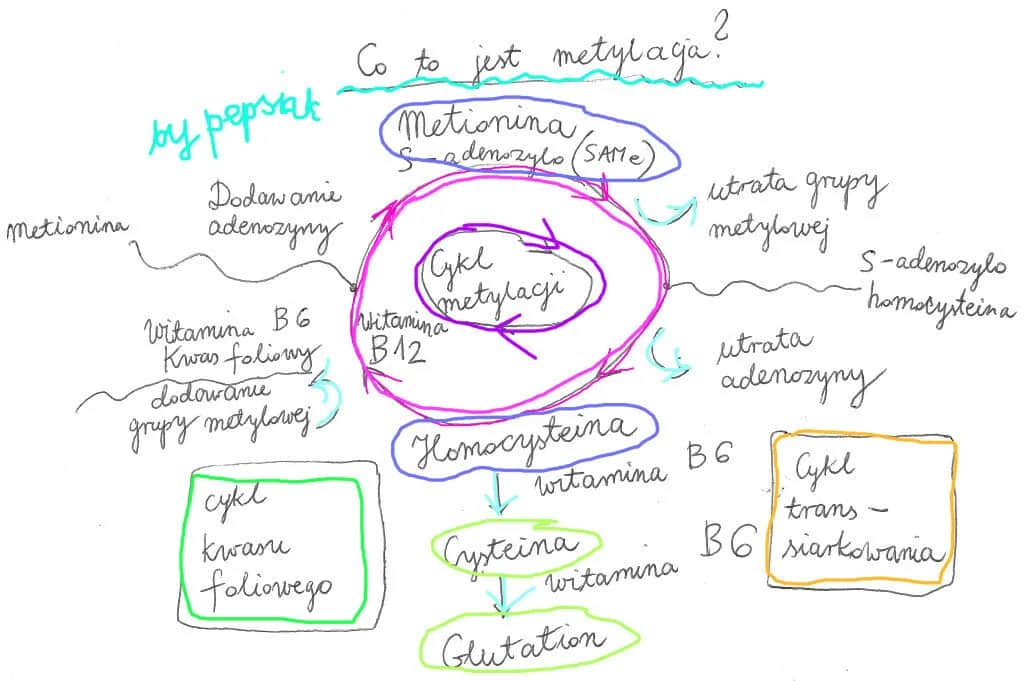 Co to jest metylacja?
by pepsiak
Metionina
S-adenozylo (SAMe)
Dodawanie
adenozyny
metionina
utrata grupy
metylowej
S-adenozylo
homocysteina
Cykl
metylacji
Witamina B6
Kwas foliowy
dodowanie
grupy metylowej
witamina
B12
utrata
adenozyny
Homocysteina
witamina B6
Cysteina
witamina B6
Glutation
cykl
kwasu
foliowego
Cykl
trans-
siarkowania